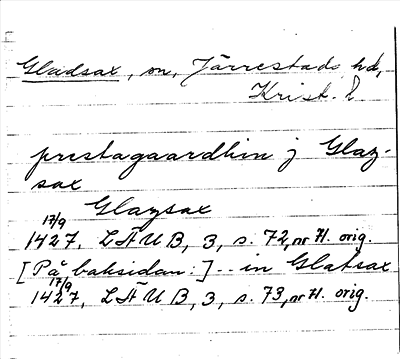 Gladsax, sn, Järrestads hd,
Krist. l
prestagaardhin j Glaz-
sax
Glazsax
17/9
1427, LÄUB, 3, s. 72, nr 71. orig.
[På baksidan:] -- in Glatsax
17/9
1427, LÄUB, 3, s. 73, nr 71. orig.